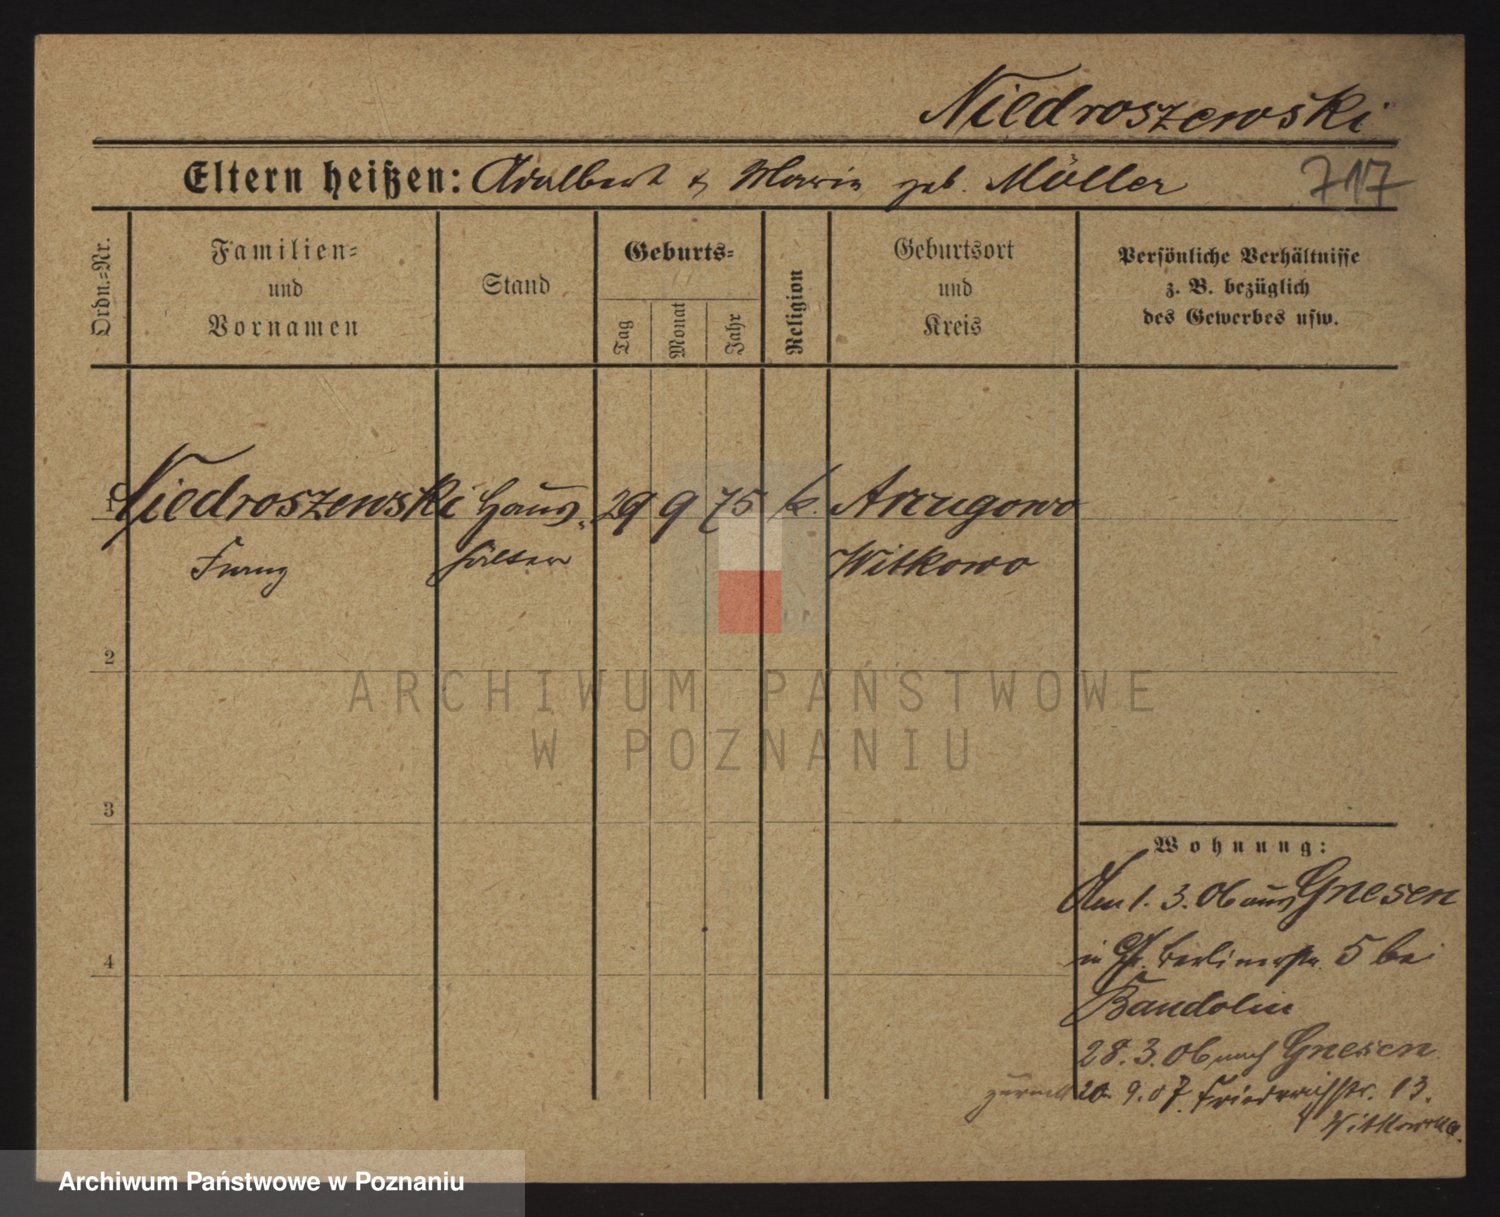 Niedroszewski
Eltern heißen: Adalbert & Maria geb. Möller 717
Ordn.-Nr.
Familien- und Vornamen
Stand
Geburts-
Tag
Monat
Jahr
Religion
Geburtsort und Kreis
Persönliche Verhältnisse
z. B. bezüglich
des Gewerbes usw.
1 Niedroszewski Haus- 29 9 75 k. Arcugowo
Franz hälter Witkowo
2
ARCHIWUM PAŃSTWOWE
W POZNANIU
3
Wohnung:
Am 1. 3. 06 aus Gnesen
in Gr. Berlinerstr. 5 bei
Bandolin
4
28. 3. 06 nach Gnesen
zurück 20. 9. 07. Friedrichstr. 13.
Archiwum Państwowe w Poznaniu